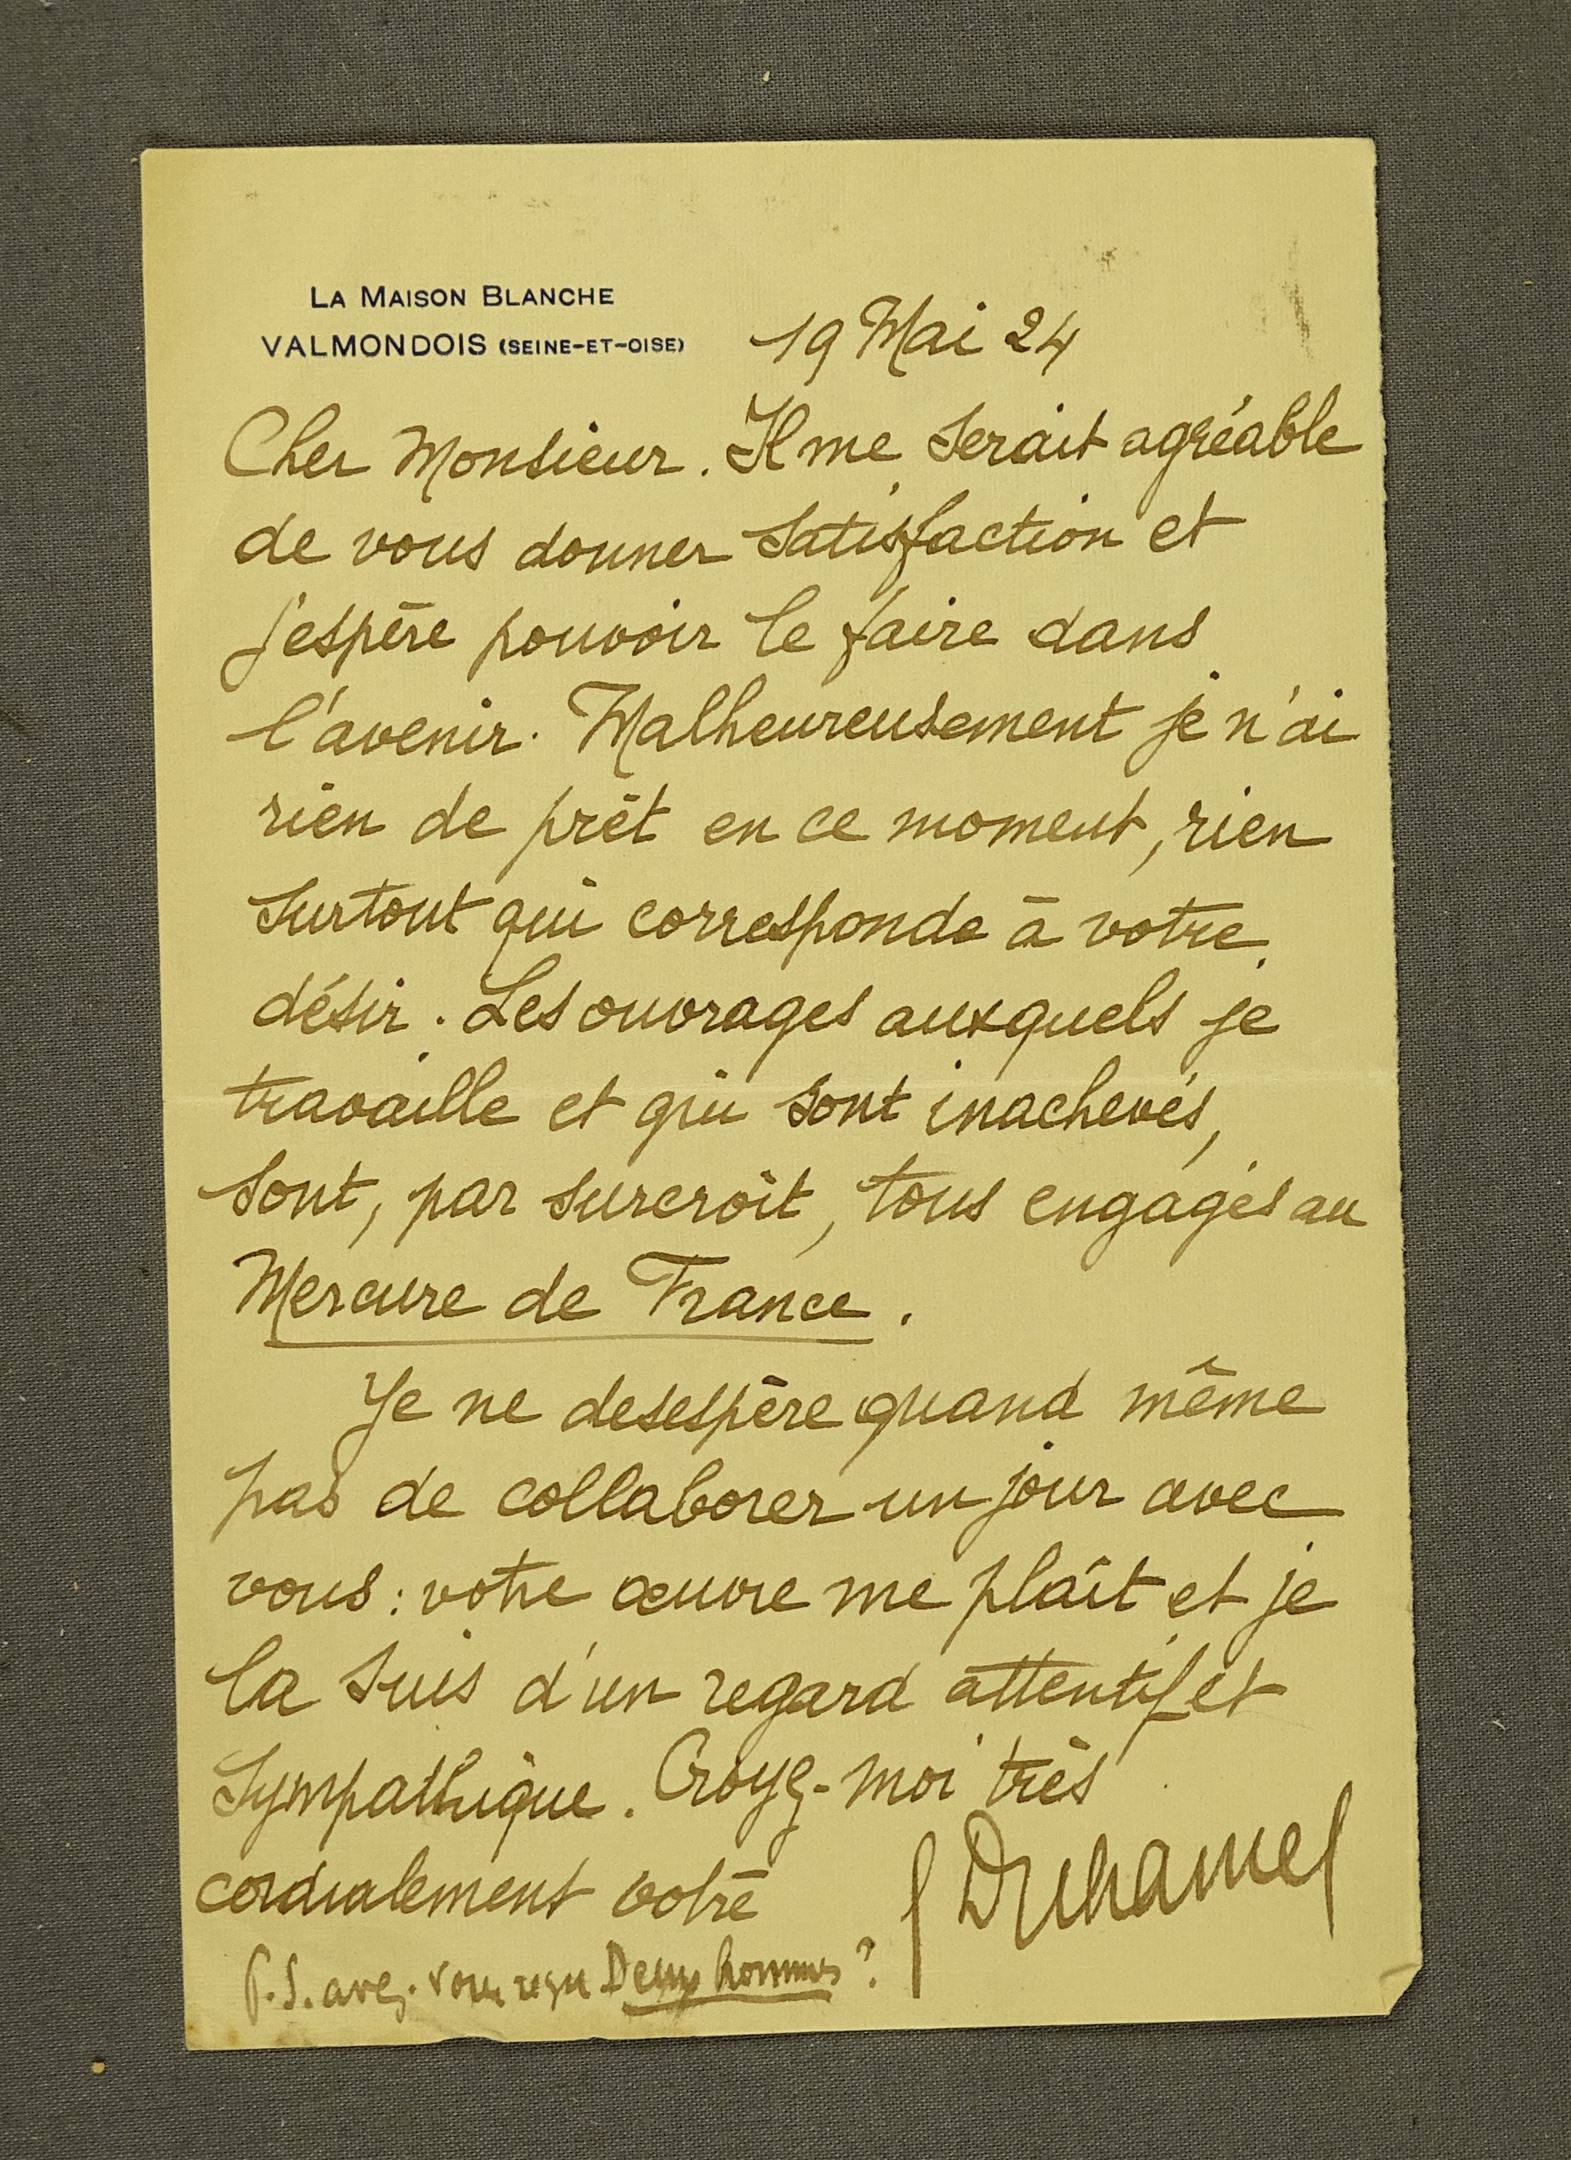 LA MAISON BLANCHE
VALMONDOIS (SEINE-ET-OISE)
19 Mai 24
Cher Monsieur. Il me serait agréable
de vous donner satisfaction et
j'espère pouvoir le faire dans
l'avenir. Malheureusement je n'ai
rien de prêt en ce moment, rien
surtout qui corresponde à votre
désir. Les ouvrages auxquels je
travaille et qui sont inachevés,
sont, par surcroît, tous engagés au
Mercure de France.
Je ne desespère quand même
pas de collaborer un jour avec
vous : votre œuvre me plaît et je
la suis d'un regard attentif et
sympathique. Croyez-moi très
cordialement votre
Duhamel
P.S. avez-vous reçu Deux hommes ?